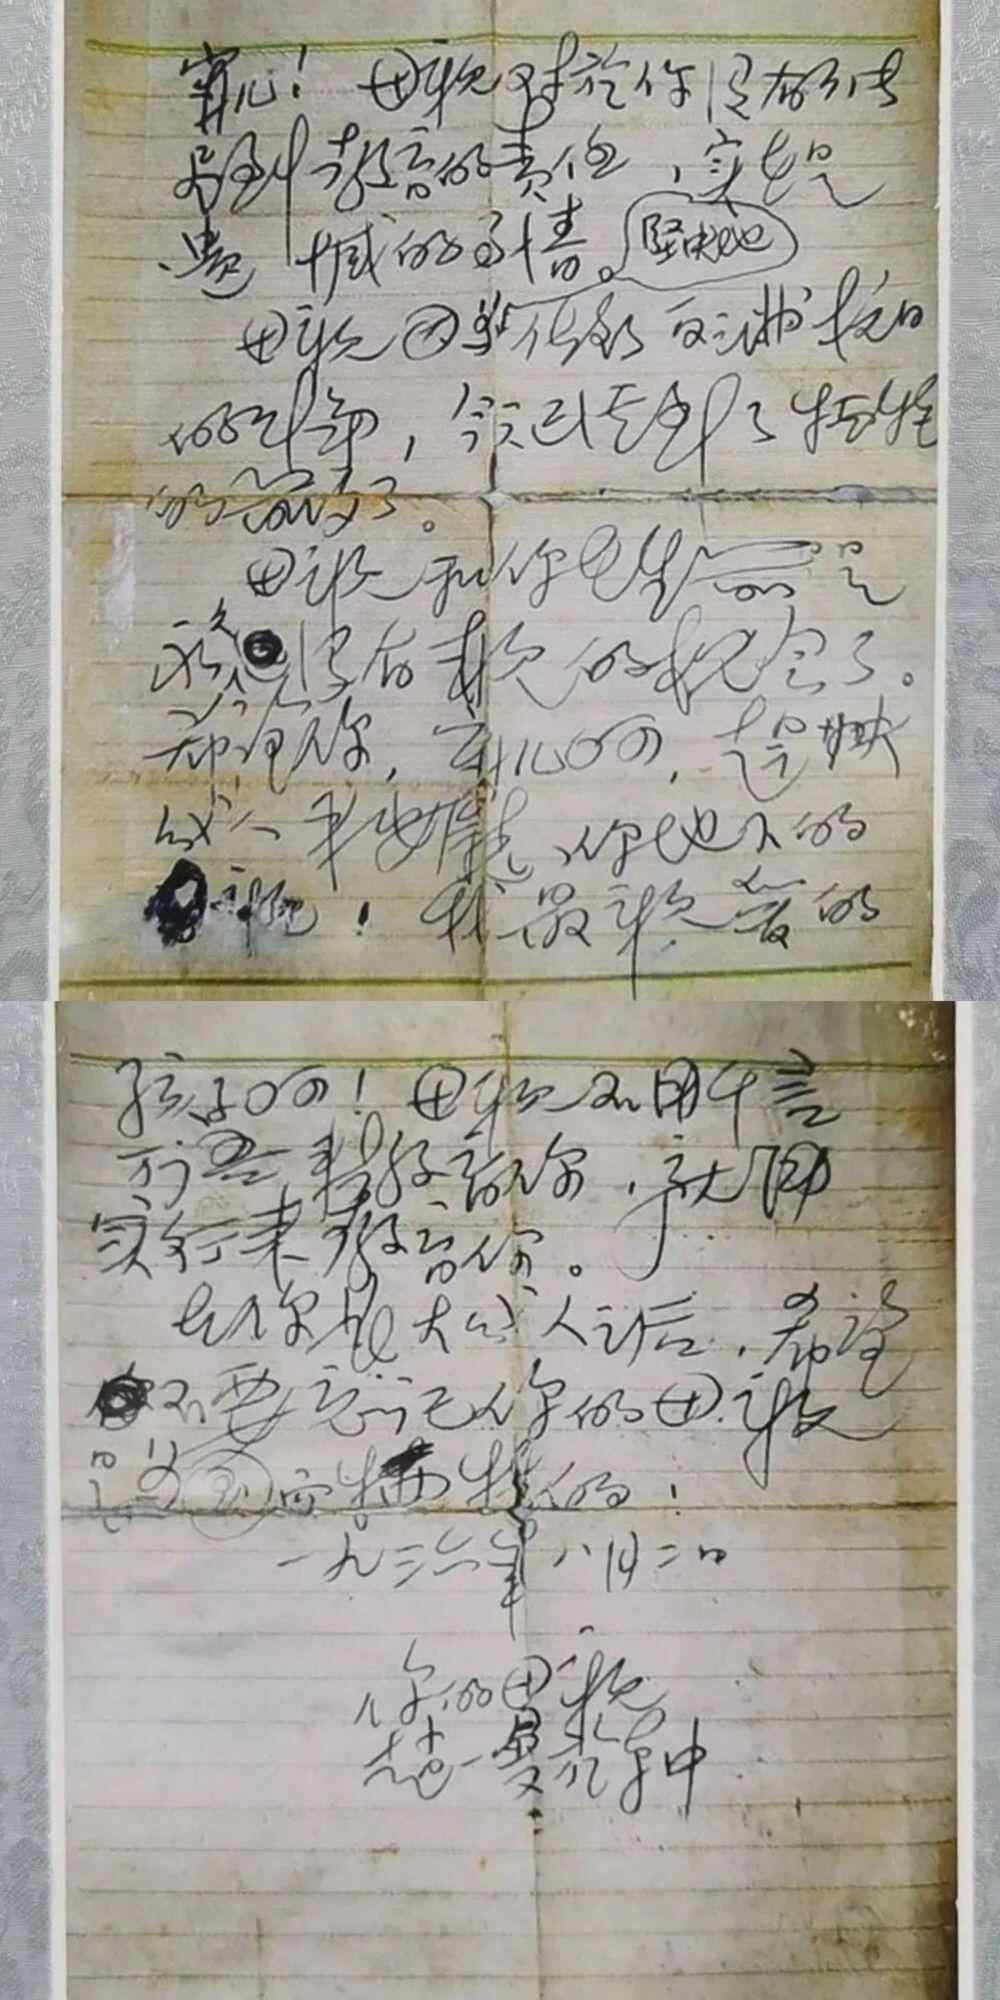 宁儿！母亲对於你没有能
尽到教育的责任，实在是
遗憾的事情。
坚决地
母亲因为 坚决地做了反满抗日
的斗争，今天已经到了牺牲
的前夕了。
母亲和你在生前是
永久没有见的机会了。
希望你，宁儿啊，赶快
成人，来安慰你地下的
母亲！我最亲爱的
孩子啊！母亲不用千言
万语来教育你，就用
实行来教育你。
在你长大成人之后，希望
不要忘记你的母亲
是为国而牺牲的！
一九三六年八月二日
你的母亲
赵一曼於车中